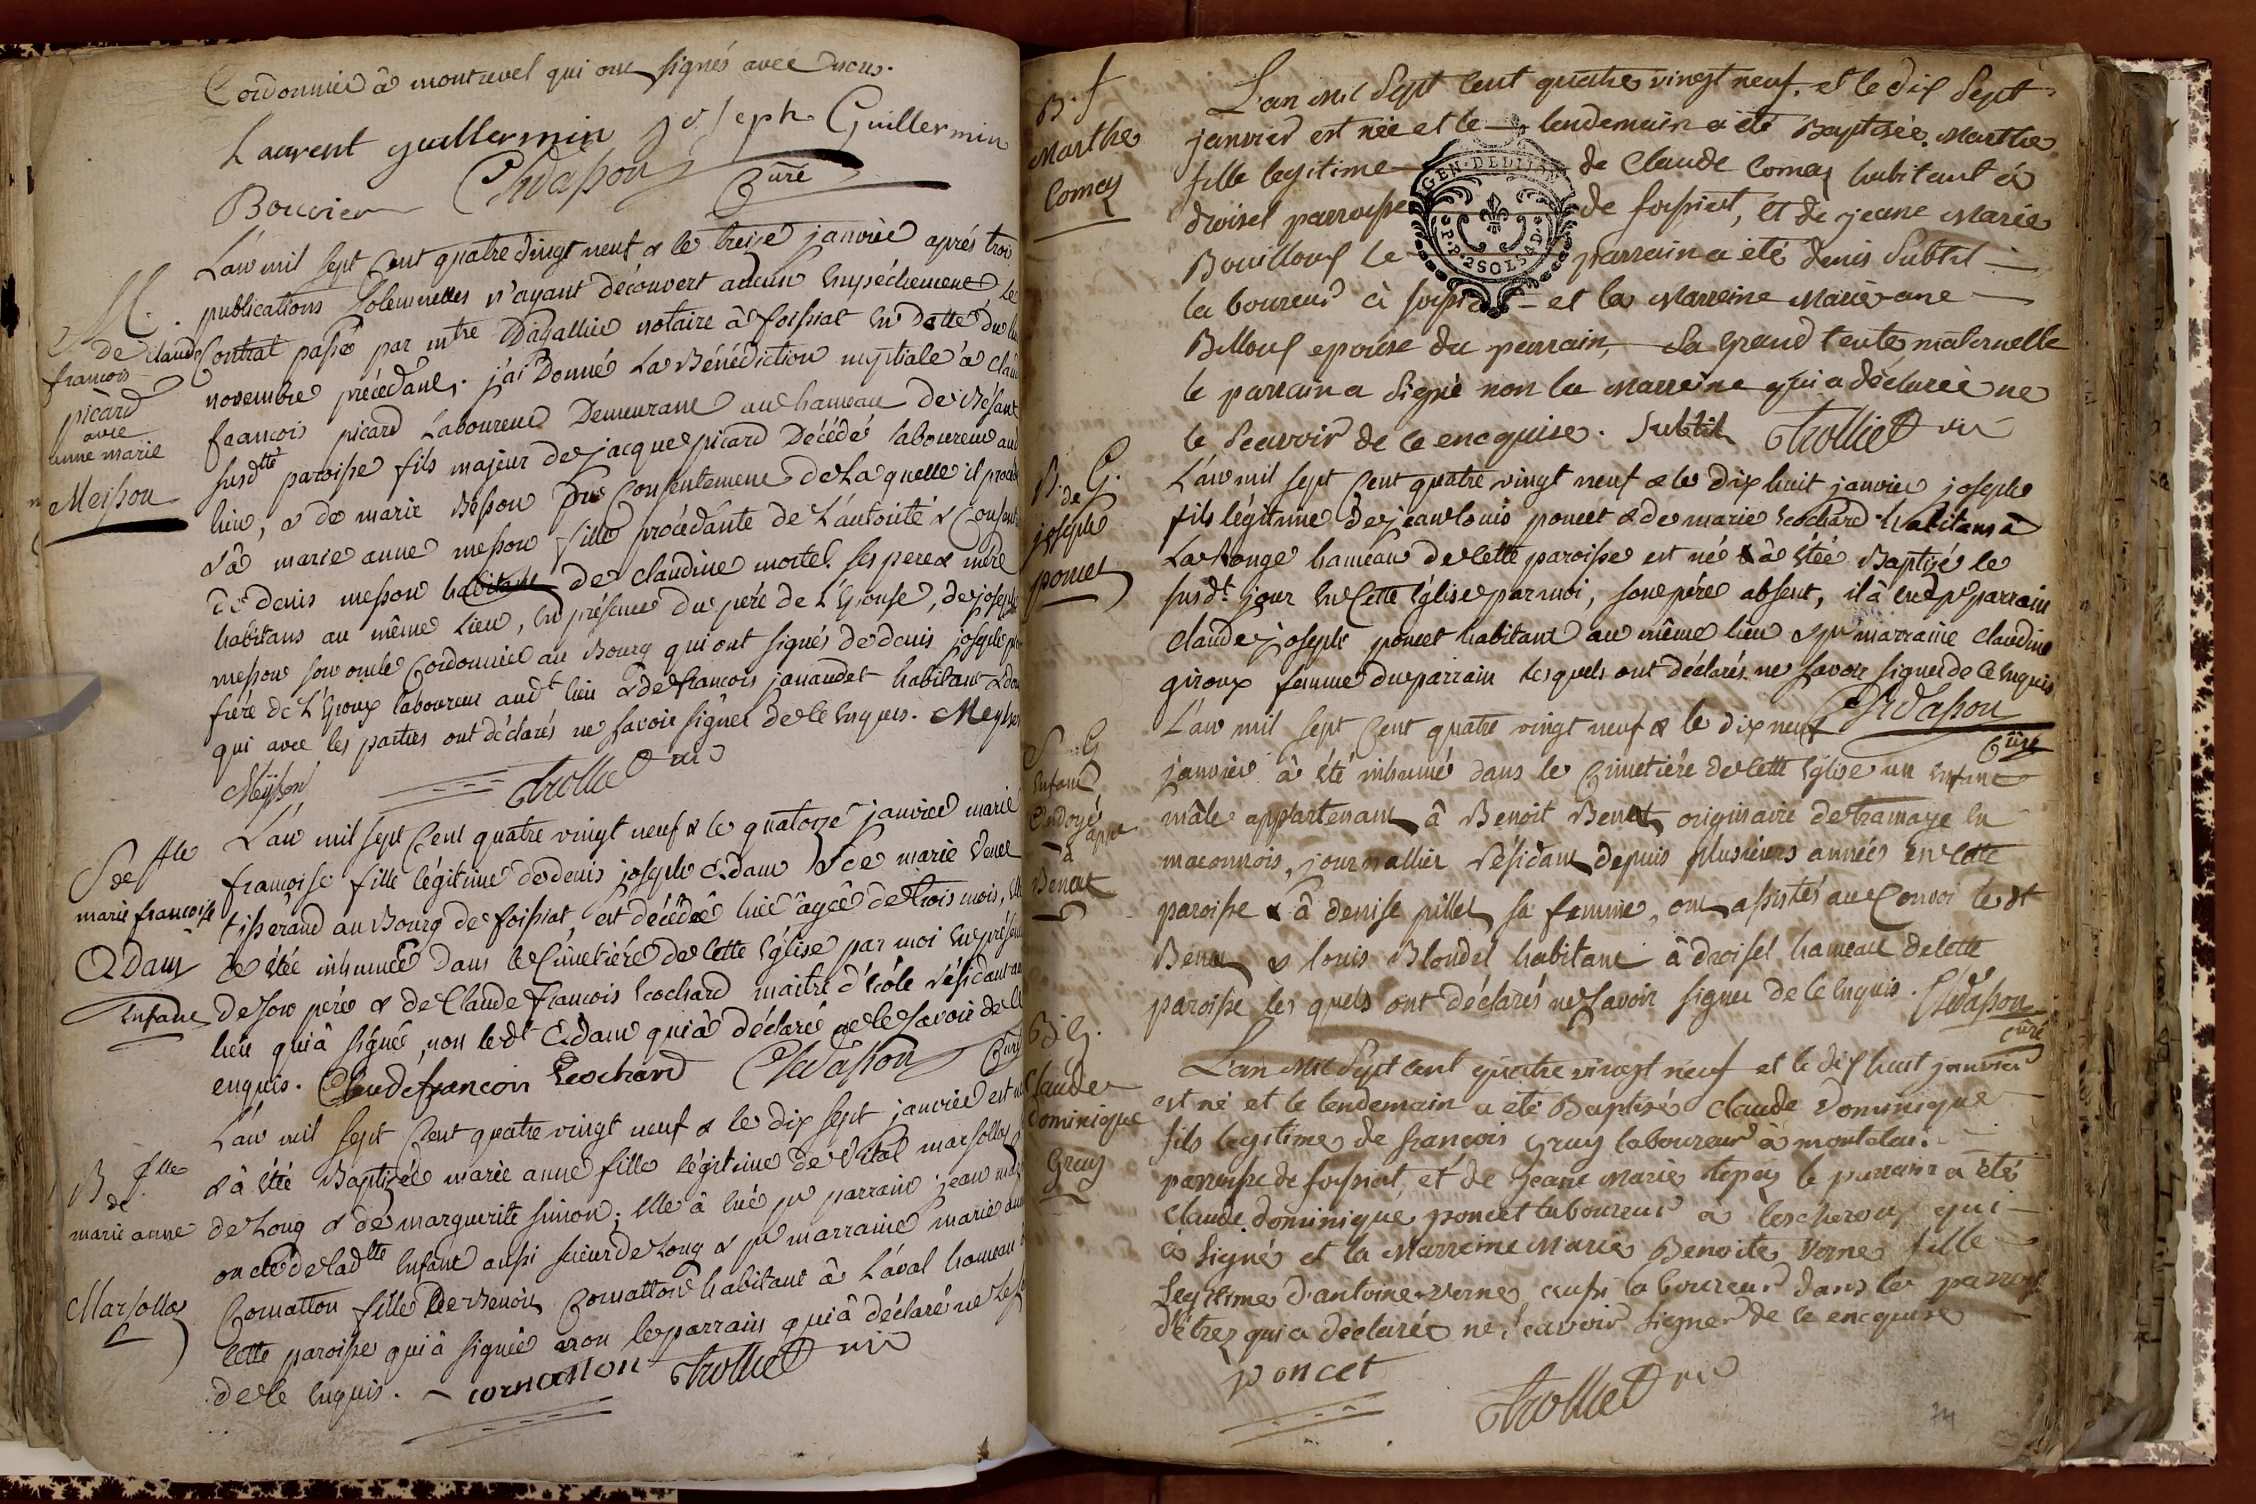 Cordonnier à montrevel qui ont signés avec nous.
Laurent guillermin Joseph Guillermin
Bouvier Chvasson Curé
M.
de claude
francois
picard
avec
anne marie
Meisson
L'an mil sept Cent quatre vingt neuf & le treize janvier aprés trois
publications Solemnelles n'ayant découvert aucun empéchement le
Contrat passé par mtre Dagallier notaire à foissiat en datte du
novembre précédant, j'ai Donné La Bénédiction nuptiale à
francois picard Laboureur Demeurant au hameau de
susdtte paroisse fils majeur de jacque picard Décédé laboureur
lieu, & de marie Besson Du Consentement de Laquelle il
& à marie anne messon fille procédante de L'autorité &
de denis messon habitant de claudine mortel ses pere & mére
habitans au même lieu, en présence du pére de L'Epouse, de joseph
messon son oncle Cordonnier au Bourg qui ont signés de denis joseph
frére de L'Epoux laboureur audt lieu & de francois janaudet habitant
qui avec les parties ont déclarés ne savoir signer de ce enquis. Meysson
Meÿsson Trolliet vic
S de fille
marie francoise
Adam
Enfant
L'an mil sept Cent quatre vingt neuf & le quatorze janvier marie
francoise fille légitime de denis joseph Adam & de marie
tisserand au Bourg de foissiat, est décédée hier âgée de trois mois,
& étée inhumée dans le Cimetiére de cette Eglise par moi en
de son pére & de Claude francois Ecochard maitre d'école résidant
lieu qui à signé, non ledt Adam qui à déclaré ne le savoir de
enquis. Claude francoi Ecochard Chvasson Curé
B fille
de
marie anne
Marsollas
L'an mil sept Cent quatre vingt neuf & le dix sept janvier est
& à étée Baptizée marie anne fille légitime de vital marsollas
de Long & de marguerite simon; elle à eue pr parrain jean
oncle de ladtte Enfant aussi scieur de Long & pr marraine marie
Cornatton fille de Benoit Cornatton habitant à Laval hameau
cette paroisse qui à signée non le parrain qui à déclaré ne le
de ce enquis. cornaton Trolliet vic
B. f
Marthe
Comas
L'an mil Sept Cent quatre vingt neuf. et le dix Sept
janvier est née et le lendemain a été Baptisée Marthe
fille legitime de Claude Comas habitant à
droiset parroisse de foissiat, et de jeane Marie
Bouilloux Le parrain a été denis Subtil
laboureur à foissiat et la Marreine Marie ane
Billoux epouse du parrain, Sa grand tente maternelle
le parrain a Signé non la Marreine qui a déclarée ne
le Scavoir de ce encquise. Subtil Trolliet vic
GEN. DE DIJON
P. P. 2 SOLS 4 D.
B. G.
de
joseph
poncet
L'an mil sept Cent quatre vingt neuf & le dix huit janvier joseph
fils légitime de jean louis poncet & de marie Ecochard habitans à
La Ronge hameau de cette paroisse est né & à étée Baptizé le
susdt jour en Cette Eglise par moi, son pére absent, il à eu pr parrain
Claude joseph poncet habitant au même lieu & pr marraine Claudine
giroux femme du parrain lesquels ont déclarés ne savoir signer de ce enquis
Chvasson
Curé
S. G
Enfant
Endoyé
appt
à
Benat
L'an mil sept Cent quatre vingt neuf & le dix neuf
janvier à été inhumé dans le Cimetiére de cette Eglise un Enfant
mâle appartenant à Benoit Benat originaire de tramaye en
maconnois, journallier résidant depuis plusieurs années en cette
paroisse & à denise pillet sa femme, ont assistés au Convoi ledt
Benat & louis Blondel habitant à droiset hameau de cette
paroisse lesquels ont déclarés ne savoir signer de ce enquis. Chvasson
curé
B. G.
Claude
dominique
Gruy
L'an Mil Sept cent quatre vingt neuf et le dix huit janvier
est né et le lendemain a été Baptisé Claude Dominique
fils legitime de françois Gruy laboureur à montalan.
parroisse de foissiat, et de jeane Marie tepay le parrain a été
Claude dominique poncet laboureur à lescheroux qui
à Signé et la Marreine Marie Benoite Verne fille
legitime d'antoine verne, aussi laboureur dans la parroisse
d'étrez qui a déclarée ne Scavoir Signer de ce encquise
poncet
Trolliet vic